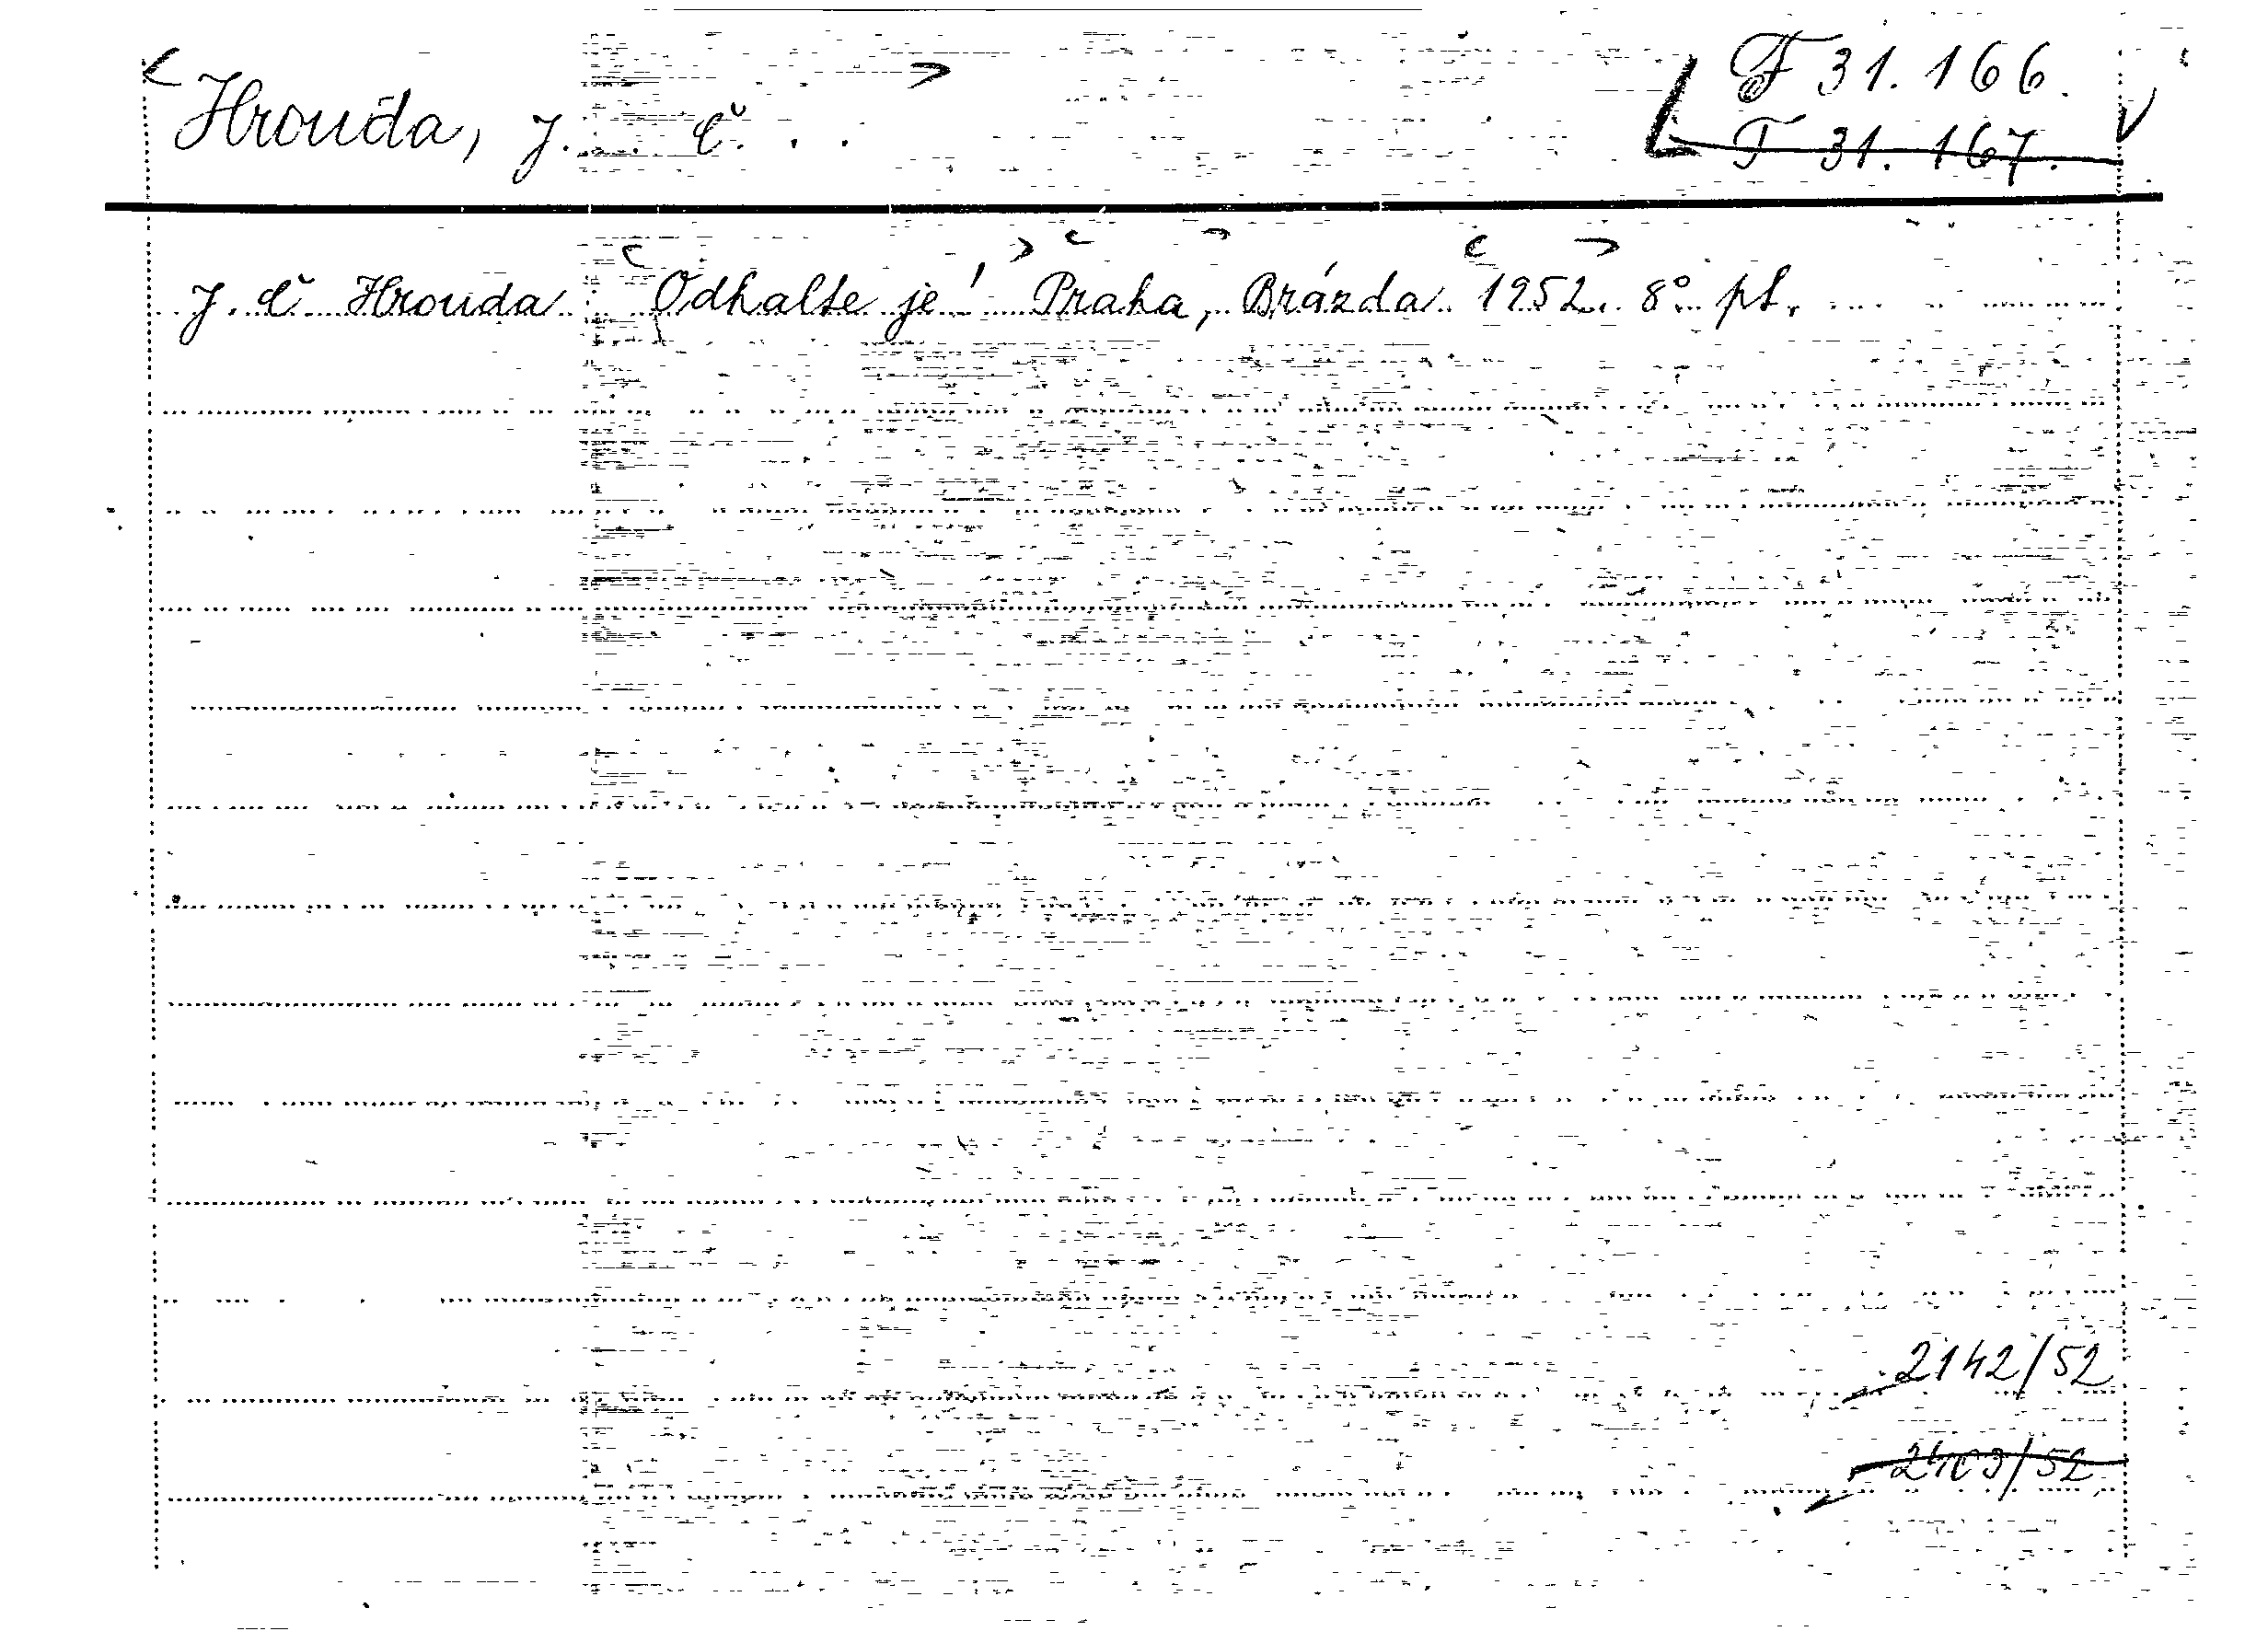 Hrouda, J. Č. . .
F 31.166.
F 31.167.
J. Č. Hrouda: Odhalte je! Praha, Brázda 1952. 8° pt.
2142/52
2403/52